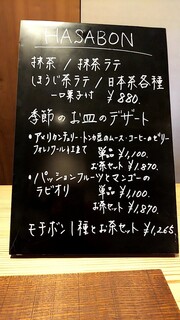 HASABON
抹茶 / 抹茶ラテ
ほうじ茶ラテ / 日本茶各種
一口菓子付 ¥880.
季節のお皿のデザート
・アメリカンチェリー・トンカ豆のムース・コーヒーのゼリー
単品 ¥1,100.
お茶セット ¥1,870.
・パッションフルーツとマンゴーの
ラビオリ 単品 ¥1,100.
お茶セット ¥1,870.
モチボン1種とお茶セット ¥1,265.